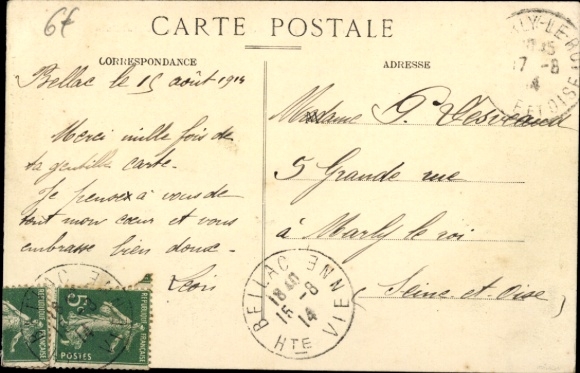 6f
CARTE POSTALE
CORRESPONDANCE
ADRESSE
Bellac le 15 août 1914
Merci mille fois de
ta gentille carte.
Je pense à vous de
tout mon cœur et vous
embrasse bien
Madame P.
5 Grande rue
à Marly le roi
(Seine et Oise)
LY-LE-ROI
17-8
14
ET OISE
BELLAC
HTE VIENNE
18 40
15-8
14
5c
POSTES
REPUBLIQUE FRANÇAISE